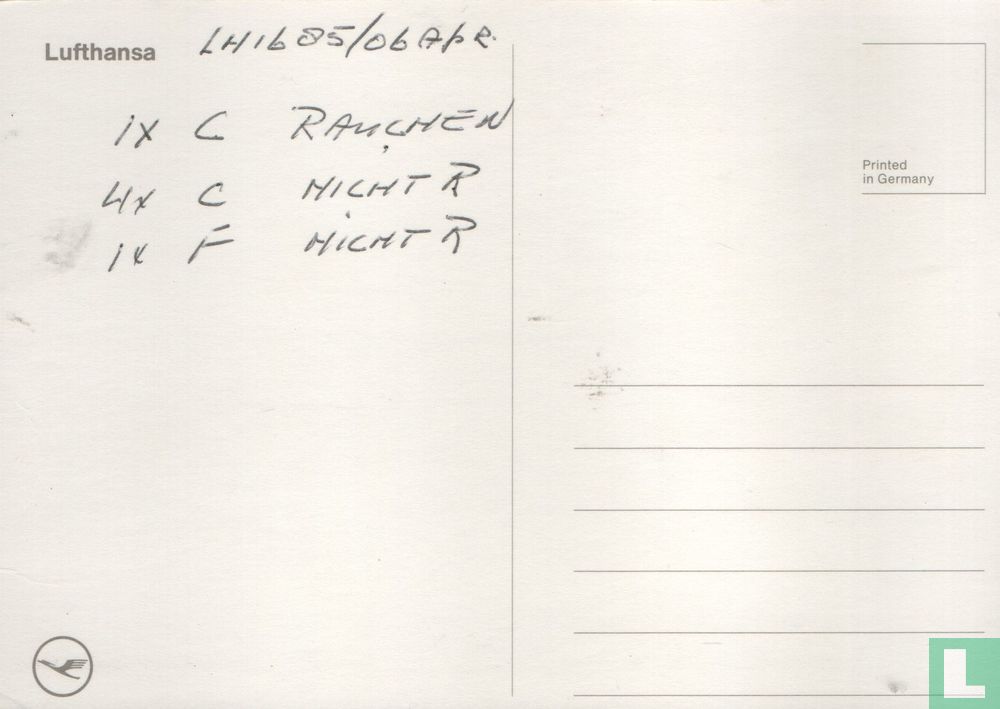 Lufthansa LH1685/06APR.
1X C RAUCHEN
4X C NICHT R
1X F NICHT R
Printed
in Germany
L